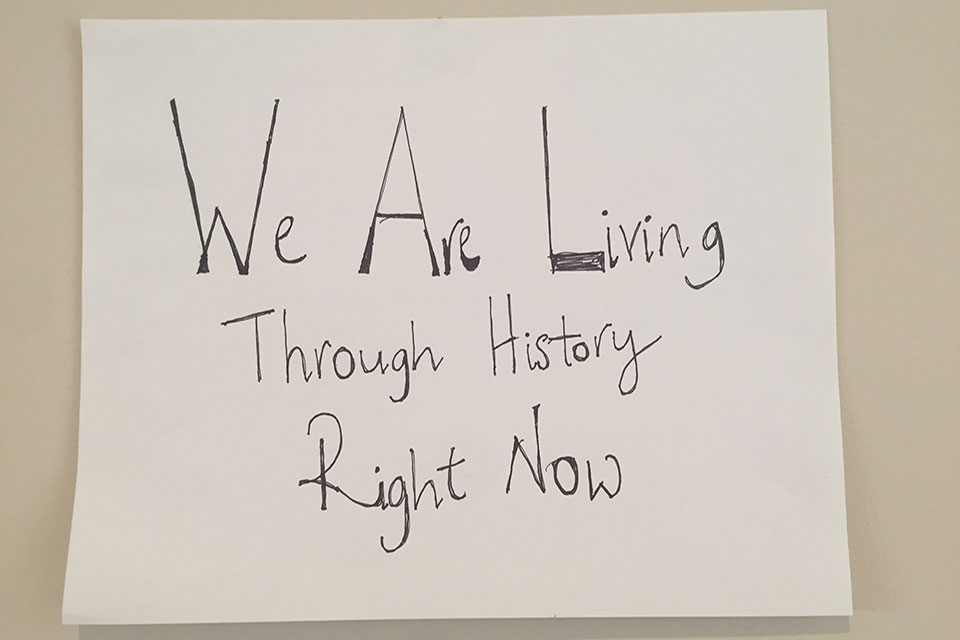 We Are Living
Through History
Right Now